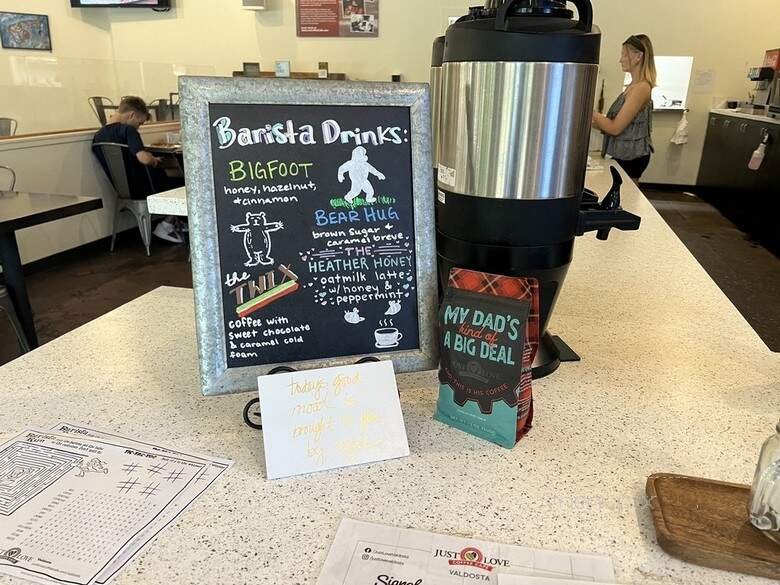 Barista Drinks:
BIGFOOT
honey, hazelnut,
+ cinnamon
BEAR HUG
brown sugar +
caramel breve
THE
HEATHER HONEY
oatmilk latte
w/ honey &
peppermint
the
TWIX
coffee with
sweet chocolate
& caramel cold
foam
today's good
mood is
brought to you
by
MY DAD'S
kind of
A BIG DEAL
AND THIS IS HIS COFFEE
Barista
TIC-TAC-TOE
JUST LOVE
COFFEE CAFE
VALDOSTA
Signature